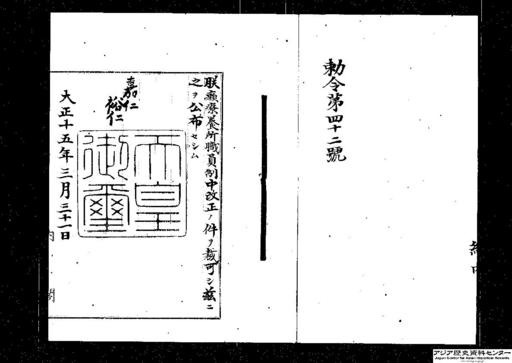 勅令第四十二號
朕癩療養所職員制中改正ノ件ヲ裁可シ茲ニ
之ヲ公布セシム
嘉仁
裕仁
天皇御璽
大正十五年三月三十一日
内閣
アジア歴史資料センター
Japan Center for Asian Historical Records